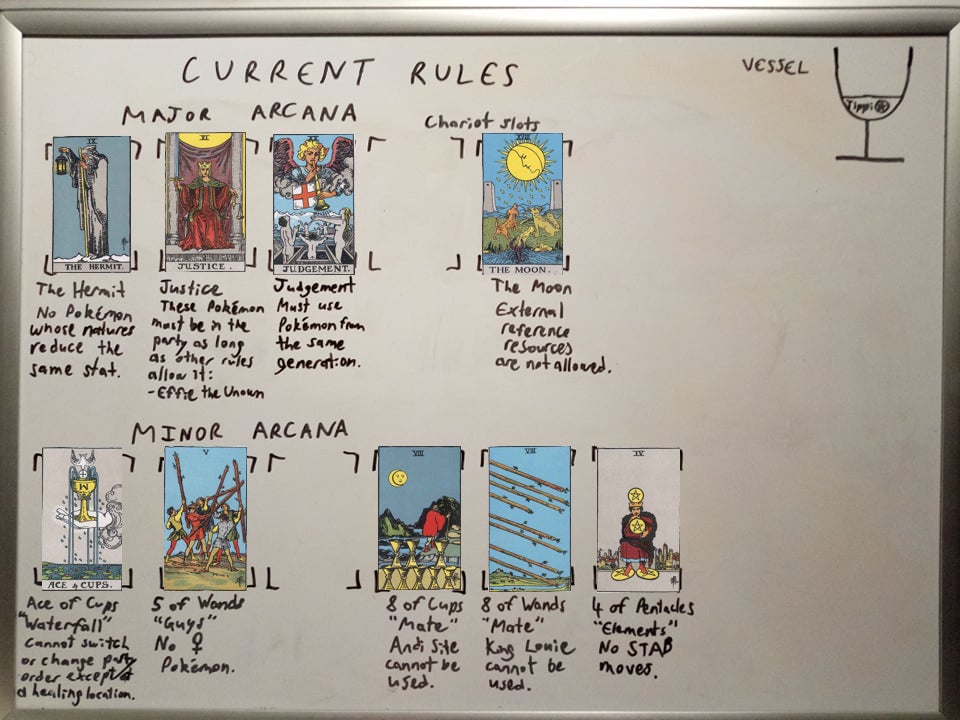 CURRENT RULES
VESSEL
Tippi
MAJOR ARCANA
Chariot slots
IX
THE HERMIT.
XI
JUSTICE.
XX
JUDGEMENT.
XVIII
THE MOON.
The Hermit
No Pokémon
whose natures
reduce the
same stat.
Justice
These Pokémon
must be in the
party as long
as other rules
allow it:
-Effie the Unown
Judgement
Must use
Pokémon from
the same
generation.
The Moon
External
reference
resources
are not allowed.
MINOR ARCANA
ACE of CUPS
V
VIII
VIII
IV
Ace of Cups
"Waterfall"
Cannot switch
or change party
order except at
a healing location.
5 of Wands
"Guys"
No ♀
Pokémon.
8 of Cups
"Mate"
Andi Site
cannot be
used.
8 of Wands
"Mate"
King Louie
cannot be
used.
4 of Pentacles
"Elements"
No STAB
moves.